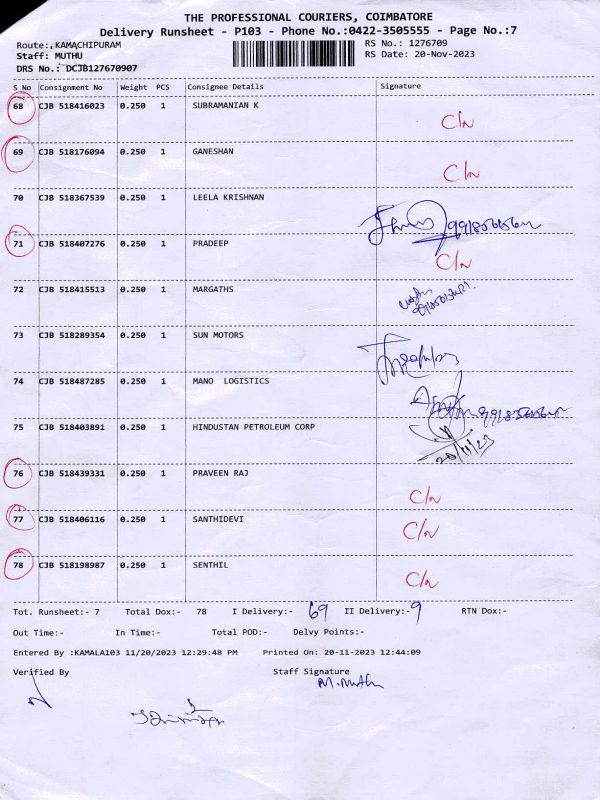 THE PROFESSIONAL COURIERS, COIMBATORE
Delivery Runsheet - P103 - Phone No.:0422-3505555 - Page No.:7
Route:.KAMACHIPURAM
RS No.: 1276709
Staff: MUTHU
RS Date: 20-Nov-2023
DRS No.: DCJB127670907
S No Consignment No Weight PCS Consignee Details Signature
68 CJB 518416023 0.250 1 SUBRAMANIAN K C/N
69 CJB 518176094 0.250 1 GANESHAN C/N
70 CJB 518367539 0.250 1 LEELA KRISHNAN
71 CJB 518407276 0.250 1 PRADEEP C/N
72 CJB 518415513 0.250 1 MARGATHS
73 CJB 518289354 0.250 1 SUN MOTORS
74 CJB 518487285 0.250 1 MANO LOGISTICS
75 CJB 518403891 0.250 1 HINDUSTAN PETROLEUM CORP 20/11/23
76 CJB 518439331 0.250 1 PRAVEEN RAJ C/N
77 CJB 518406116 0.250 1 SANTHIDEVI C/N
78 CJB 518198987 0.250 1 SENTHIL C/N
Tot. Runsheet:- 7 Total Dox:- 78 I Delivery:- 69 II Delivery:- 9 RTN Dox:-
Out Time:- In Time:- Total POD:- Delvy Points:-
Entered By :KAMALA103 11/20/2023 12:29:48 PM Printed On: 20-11-2023 12:44:09
Verified By Staff Signature
M. Muthu